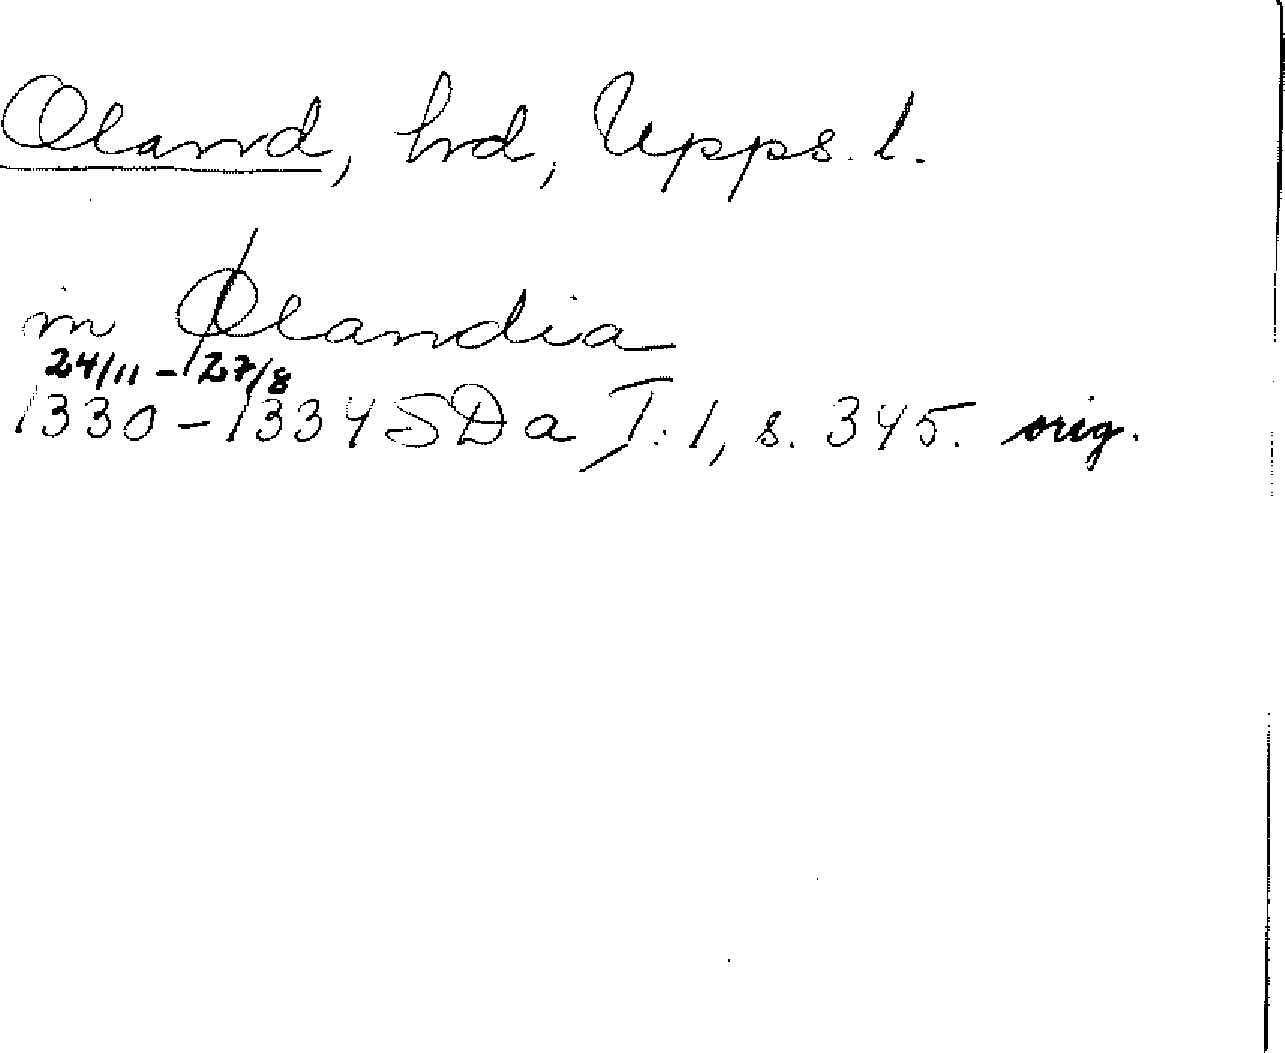 Oland, hd, Upps. l.
in Ølandia
24/11 - 27/8
1330-1334 SDa T: 1, s. 345. orig.